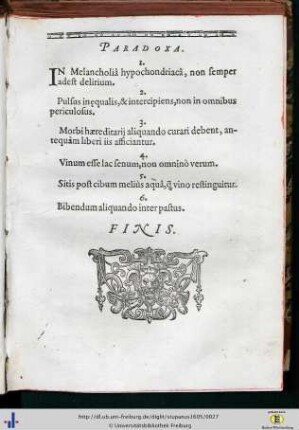 PARADOXA.
1.
IN Melancholiâ hypochondriacâ, non semper
adest delirium.
2.
Pulsus inęqualis, & intercipiens, non in omnibus
periculosus.
3.
Morbi hæreditarij aliquando curari debent, an-
tequàm liberi iis afficiantur.
4.
Vinum esse lac senum, non omninò verum.
5.
Sitis post cibum meliùs aquâ, q̃ vino restinguitur.
6.
Bibendum aliquando inter pastus.
FINIS.
http://dl.ub.uni-freiburg.de/diglit/stupanus1605/0027
© Universitätsbibliothek Freiburg